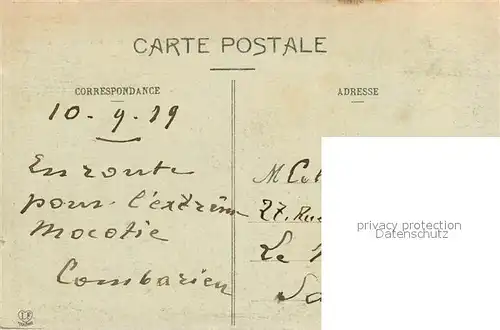 CARTE POSTALE
CORRESPONDANCE
ADRESSE
10-9-19
En route
pour l'extrême
Mocotie
Combarieu
M
27, Rue
Le
privacy protection
Datenschutz